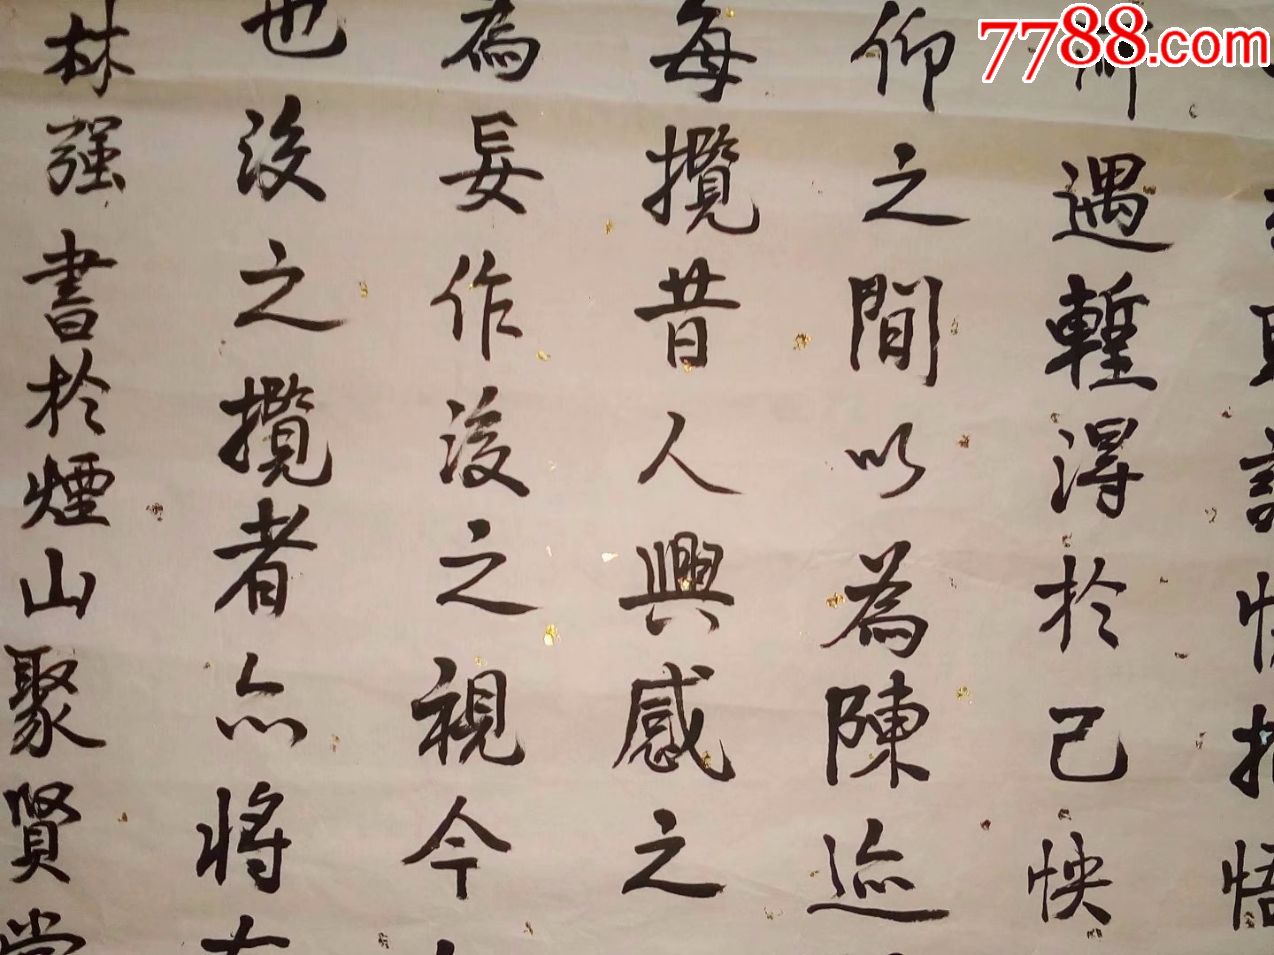 7788.com
取諸懷抱悟
所遇暫得於己怏
仰之間以為陳迹
每攬昔人興感之
為妄作後之視今
也後之攬者亦將有
林强書於煙山聚賢堂